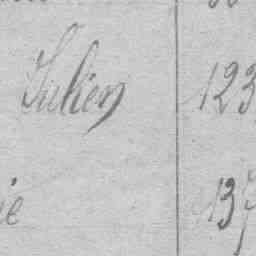 Julien 123
ie 137